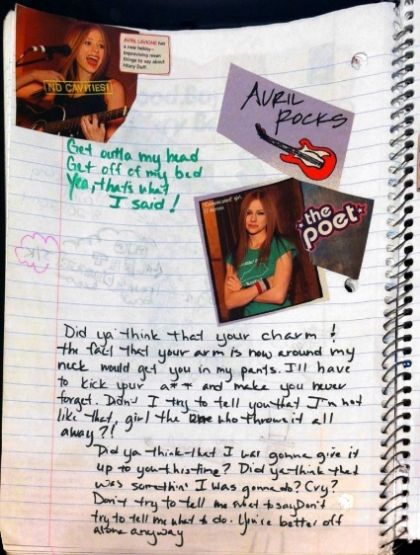 AVRIL LAVIGNE has
a new hobby—
improvising mean
things to say about
Hilary Duff.
NO CAVITIES!
AVRIL
ROCKS
Get outta my head
Get off of my bed
Yea, thats what
I said!
"Complicated" girl,
the
poet
Did ya think that your charm !
the fact that your arm is now around my
neck would get you in my pants. I'll have
to kick your a** and make you never
forget. Didn't I try to tell you that I'm not
like that, girl the one who throws it all
away?!
Did ya think that I was gonna give it
up to you this time? Did ya think that
was somethin' I was gonna do? Cry?
Don't try to tell me what to say Don't
try to tell me what to do. You're better off
alone anyway